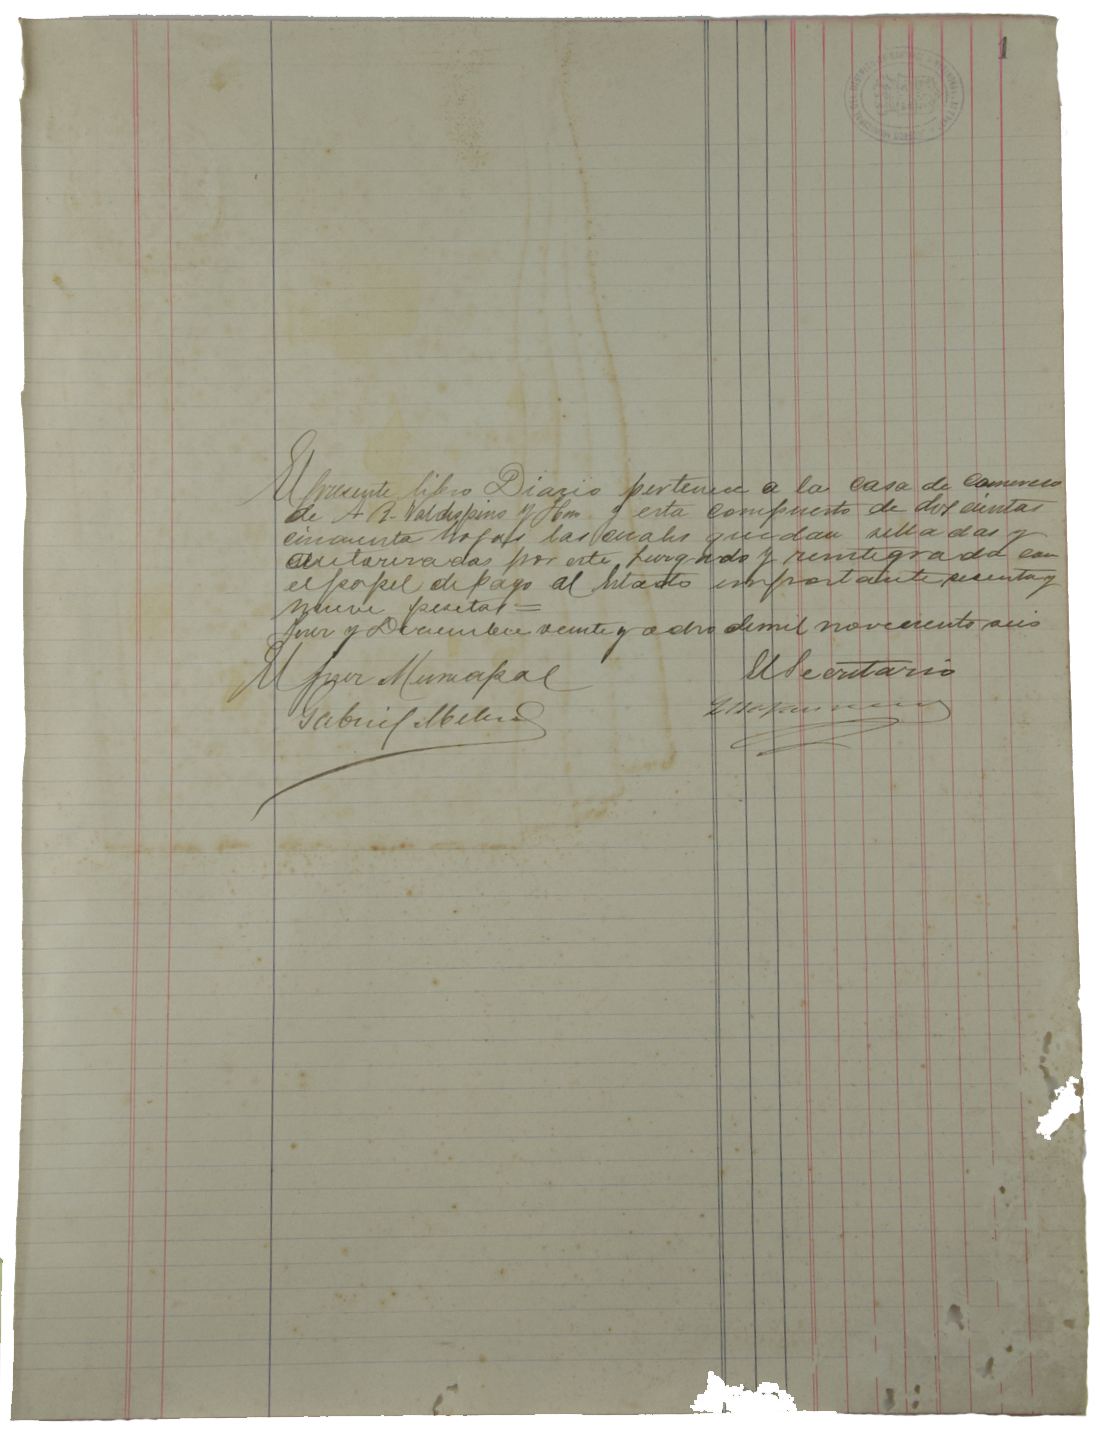 1
El presente libro Diario pertenece a la casa de Comercio
de A R. Valdespino y Hno y esta compuesto de doscientas
cincuenta hojas las cuales quedan selladas y
autorizadas por este Juzgado y reintegrado con
el papel de pago al Estado importante sesenta y
nueve pesetas =
Jerez y Diciembre veinte y ocho de mil novecientos seis
El Juez Municipal
El Secretario
Gabriel